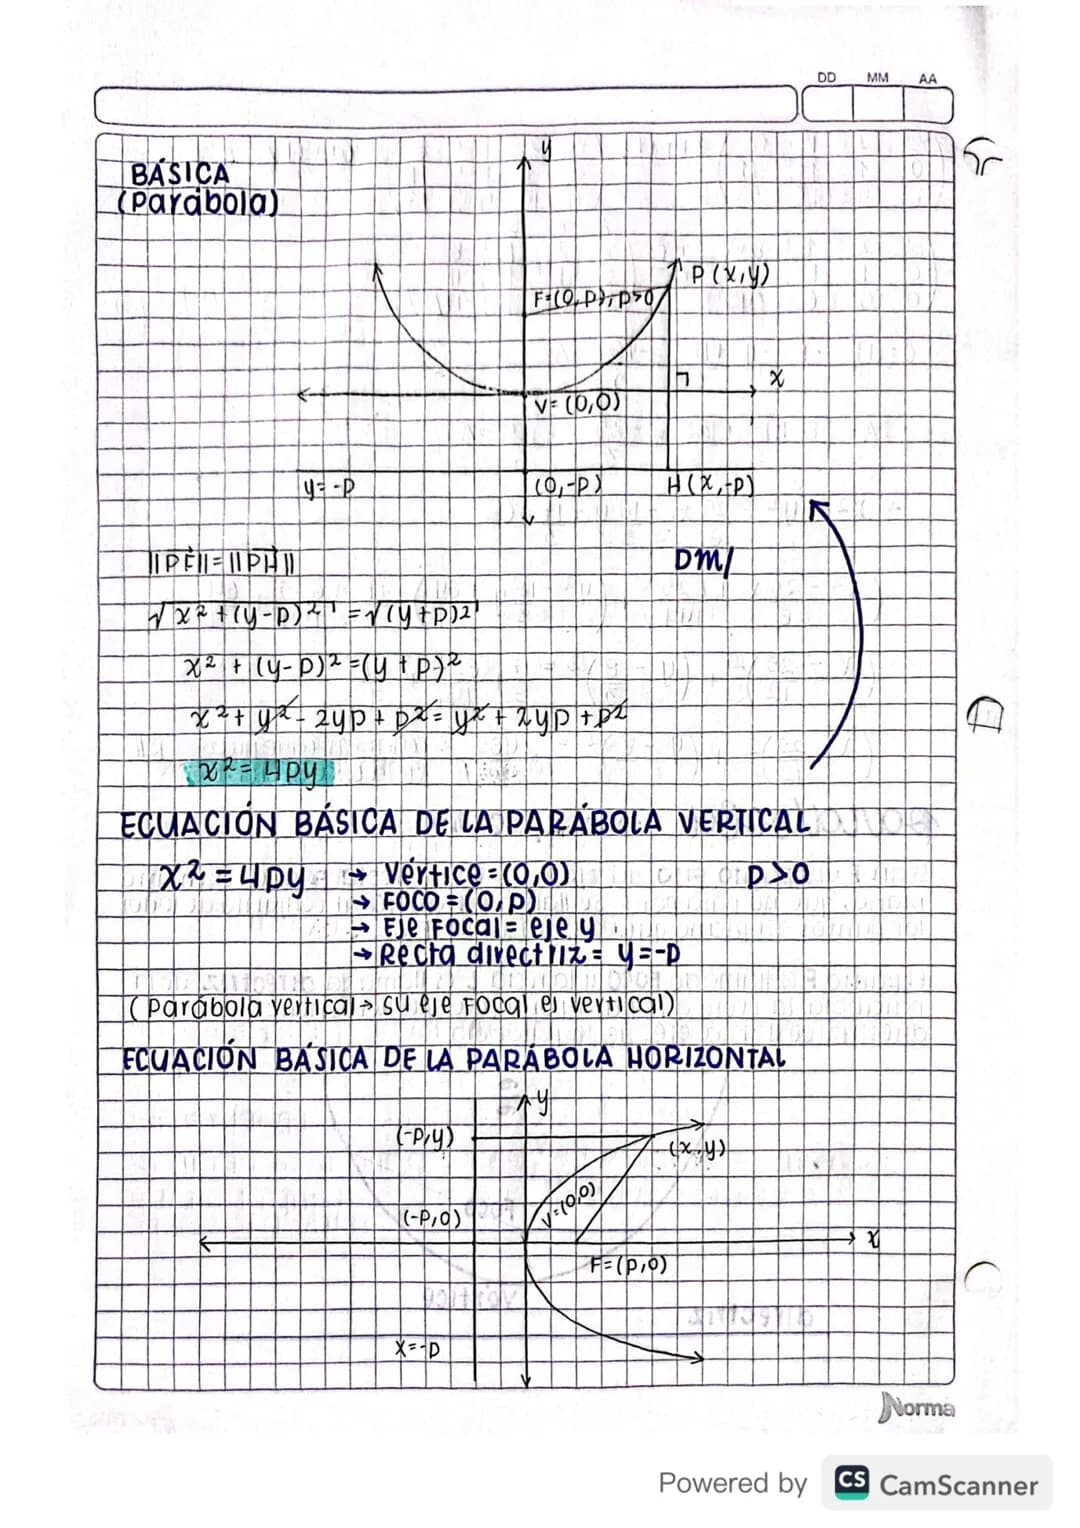 DD MM AA
BÁSICA
(Parábola)
y
P (x,y)
F=(0,p), p>0
x
V= (0,0)
y= -p
(0,-p)
H(x,-p)
||PF||=||PH||
Dm/
√x² +(y-p)² = √(y+p)²
x² + (y-p)² =(y +p)²
x²+ y² - 2yp + p² = y² + 2yp +p²
x² = 4py
ECUACIÓN BÁSICA DE LA PARÁBOLA VERTICAL
x² = 4py → Vértice =(0,0) p>0
→ FOCO =(0,p)
→ Eje Focal = eje y
→ Recta directriz = y=-p
(Parábola vertical → su eje Focal es vertical)
ECUACIÓN BÁSICA DE LA PARÁBOLA HORIZONTAL
y
(-p,y)
(x,y)
V=(0,0)
(-p,0)
x
F=(p,0)
x=-p
Norma
Powered by CS CamScanner